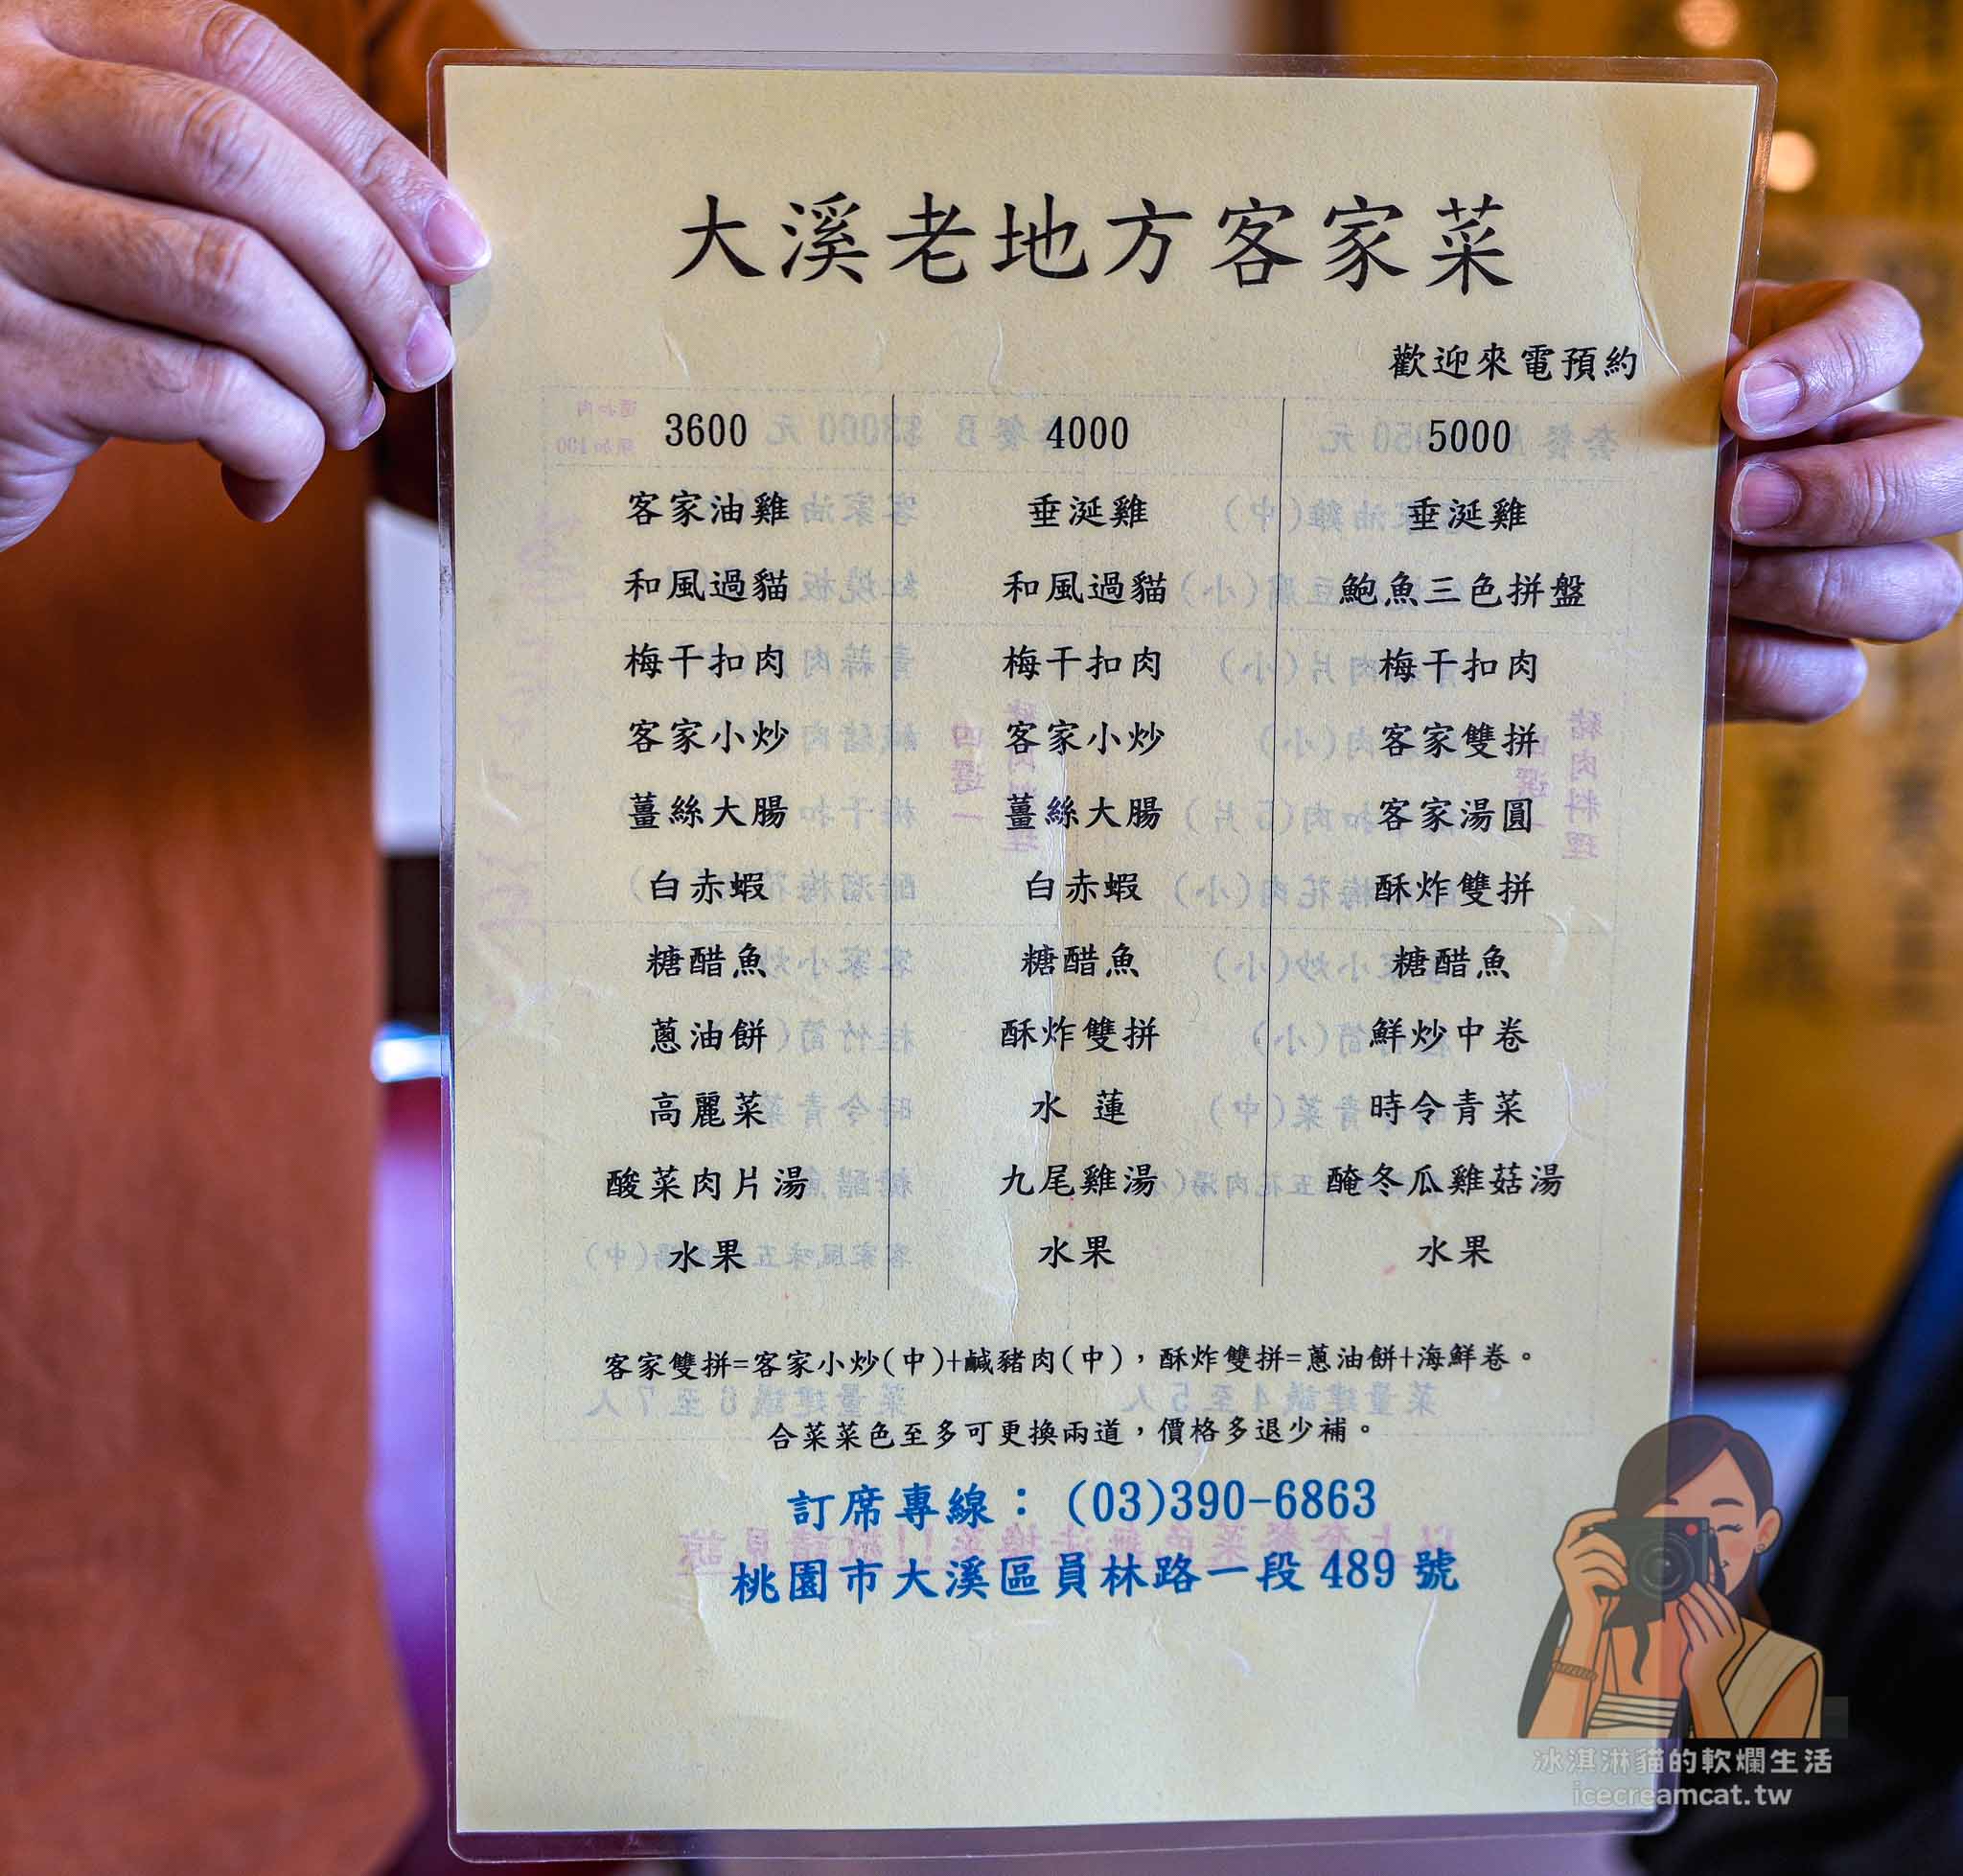 大溪老地方客家菜
歡迎來電預約
3600 4000 5000
客家油雞 垂涎雞 垂涎雞
和風過貓 和風過貓 鮑魚三色拼盤
梅干扣肉 梅干扣肉 梅干扣肉
客家小炒 客家小炒 客家雙拼
薑絲大腸 薑絲大腸 客家湯圓
白赤蝦 白赤蝦 酥炸雙拼
糖醋魚 糖醋魚 糖醋魚
蔥油餅 酥炸雙拼 鮮炒中卷
高麗菜 水 蓮 時令青菜
酸菜肉片湯 九尾雞湯 醃冬瓜雞菇湯
水果 水果 水果
客家雙拼=客家小炒(中)+鹹豬肉(中)，酥炸雙拼=蔥油餅+海鮮卷。
合菜菜色至多可更換兩道，價格多退少補。
訂席專線： (03)390-6863
桃園市大溪區員林路一段 489 號
冰淇淋貓的軟爛生活
icecreamcat.tw